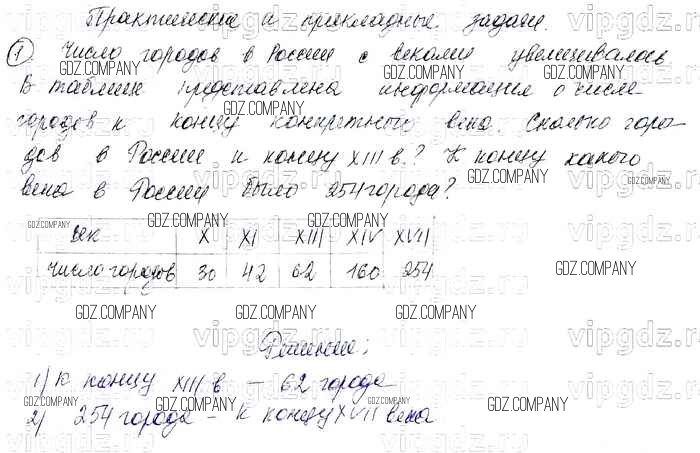 Практические и прикладные задачи.
1 Число городов в России с веками увеличивалось
В таблице представлена информация о числе
городов к концу конкретного века. Сколько горо
дов в России к концу XIII в.? К концу какого
века в России было 254 города?
век X XI XIII XIV XVII
число городов 30 42 62 160 254
Решение:
1) к концу XIII в – 62 города
2) 254 города – к концу XVII века
GDZ.COMPANY
vipgdz.ru